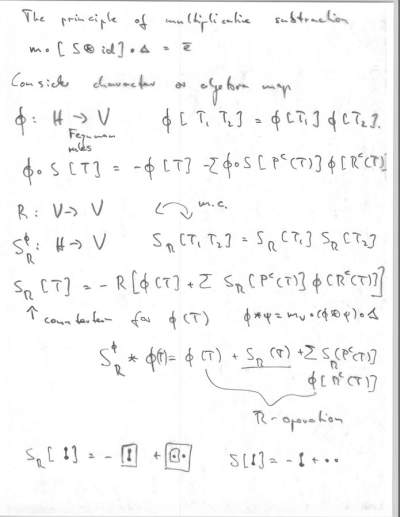 The principle of multiplicative subtraction
m ∘ [S ⊗ id] ∘ Δ = ē
Consider character as algebra map
ϕ : H → V   ϕ[T₁ T₂] = ϕ[T₁] ϕ[T₂].
Feynman
rules
ϕ∘S[T] = -ϕ[T] - Σ ϕ∘S[Pᶜ(T)] ϕ[Rᶜ(T)]
R : V → V   m.c.
S_R^ϕ : H → V   S_R[T₁ T₂] = S_R[T₁] S_R[T₂]
S_R[T] = -R[ϕ(T) + Σ S_R(Pᶜ(T)) ϕ(Rᶜ(T))]
↑ counterterm for ϕ(T)   ϕ*φ = m_V∘(ϕ⊗φ)∘Δ
S_R^ϕ * ϕ(T) = ϕ(T) + S_R(T) + Σ S_R(Pᶜ(T))
ϕ[Rᶜ(T)]
R-operation
S_R[ ] = - + 
S[ ] = - + ••